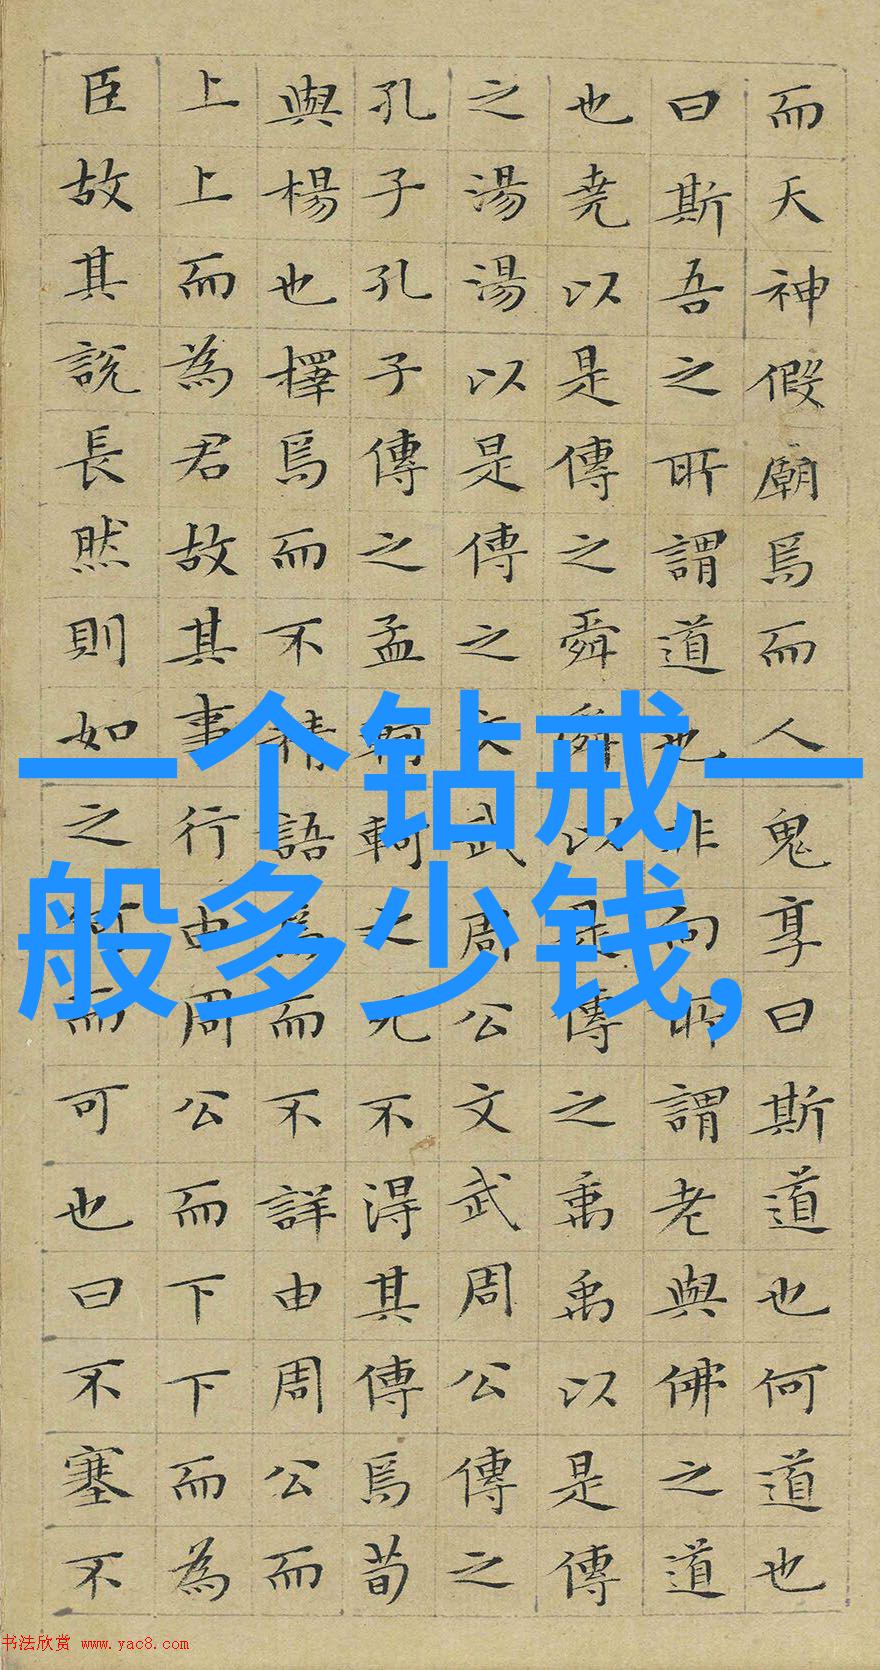 而天神假廟焉而人鬼享曰斯道也何道也
曰斯吾之所謂道也非向所謂老與佛之道
也堯以是傳之舜舜以是傳之禹禹以是傳
之湯湯以是傳之文武周公文武周公傳之
孔子孔子傳之孟軻軻之死不得其傳焉荀
與楊也擇焉而不精語焉而不詳由周公而
上上而為君故其事行由周公而下下而為
臣故其說長然則如之何而可也曰不塞不
一个钻戒一
般多少钱,
书法欣赏 www.yac8.com